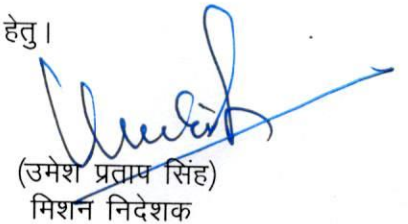 हेतु।
(उमेश प्रताप सिंह)
मिशन निदेशक